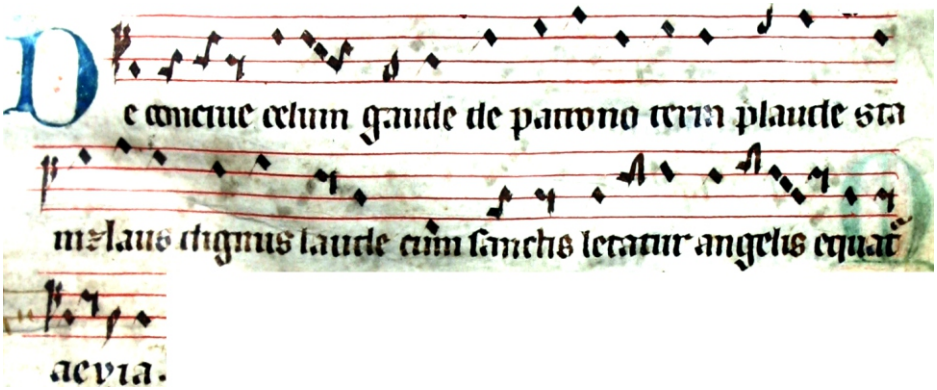 De conciue celum gaude de patrono terra plaude sta
nizlaus dignus laude cum sanctis letatur angelis equat̄
aevia.